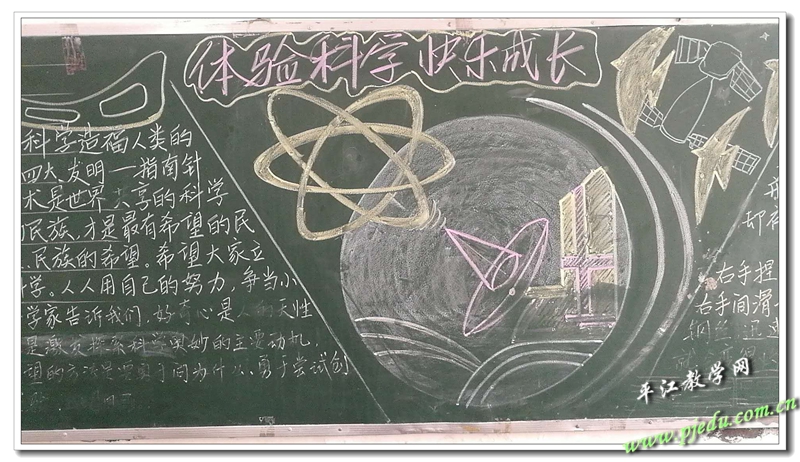 体验科学 快乐成长
科学造福人类的
四大发明——指南针
术是世界共享的科学
民族,才是最有希望的民
民族的希望。希望大家立
学。人人用自己的努力,争当小
学家告诉我们,好奇心是人的天性
是激发探索科学奥妙的主要动机,
望的方法是要勇于问为什么,勇于尝试创
却
右手握
右手间滑
平江教学网
www.pjedu.com.cn